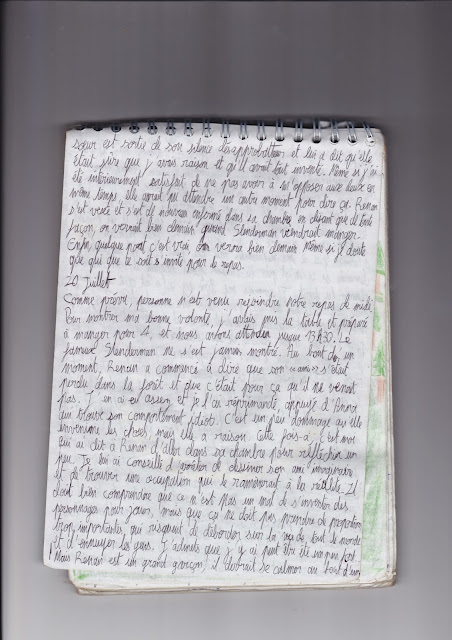 sœur est sortie de son silence désapprobateur et lui a dit qu'elle
était sûre que j'avais raison et qu'il avait tout inventé. Même si j'ai
été intérieurement satisfait de ne pas avoir à m'opposer aux deux en
même temps, elle aurait pu attendre un autre moment pour dire ça. Renan
s'est vexé et s'est de nouveau enfermé dans sa chambre en disant que de toute
façon, on verrait bien demain quand Slenderman viendrait manger.
Enfin, quelque part c'est vrai, on verra bien demain. Même si je doute
que qui que ce soit s'invite pour le repas.
20 Juillet
Comme prévu, personne n'est venu rejoindre notre repas de midi.
Pour montrer ma bonne volonté, j'avais mis la table et préparé
à manger pour 4, et nous avons attendu jusque 13h30. Le
fameux Slenderman ne s'est jamais montré. Au bout d'un
moment, Renan a commencé à dire que son "ami" s'était
perdu dans la forêt et que c'était pour ça qu'il ne venait
pas. J'en ai eu assez et je l'ai réprimandé, appuyé d'Anna
qui trouve son comportement idiot. C'est un peu dommage qu'elle
envenime les choses, mais elle a raison cette fois-ci. C'est moi
qui ai dit à Renan d'aller dans sa chambre pour réfléchir un
peu. Je lui ai conseillé d'arrêter de dessiner son ami imaginaire
et de trouver une occupation qui le ramènerait à la réalité. Il
doit bien comprendre que ce n'est pas un mal de s'inventer des
personnages pour jouer, mais que ça ne doit pas prendre de proportions
trop importantes, qui risquent de déborder sur la vie de tout le monde
et d'ennuyer les gens. J'admets que j'y ai peut être été un peu fort
Mais Renan est un grand garçon, il devrait se calmer au bout d'un